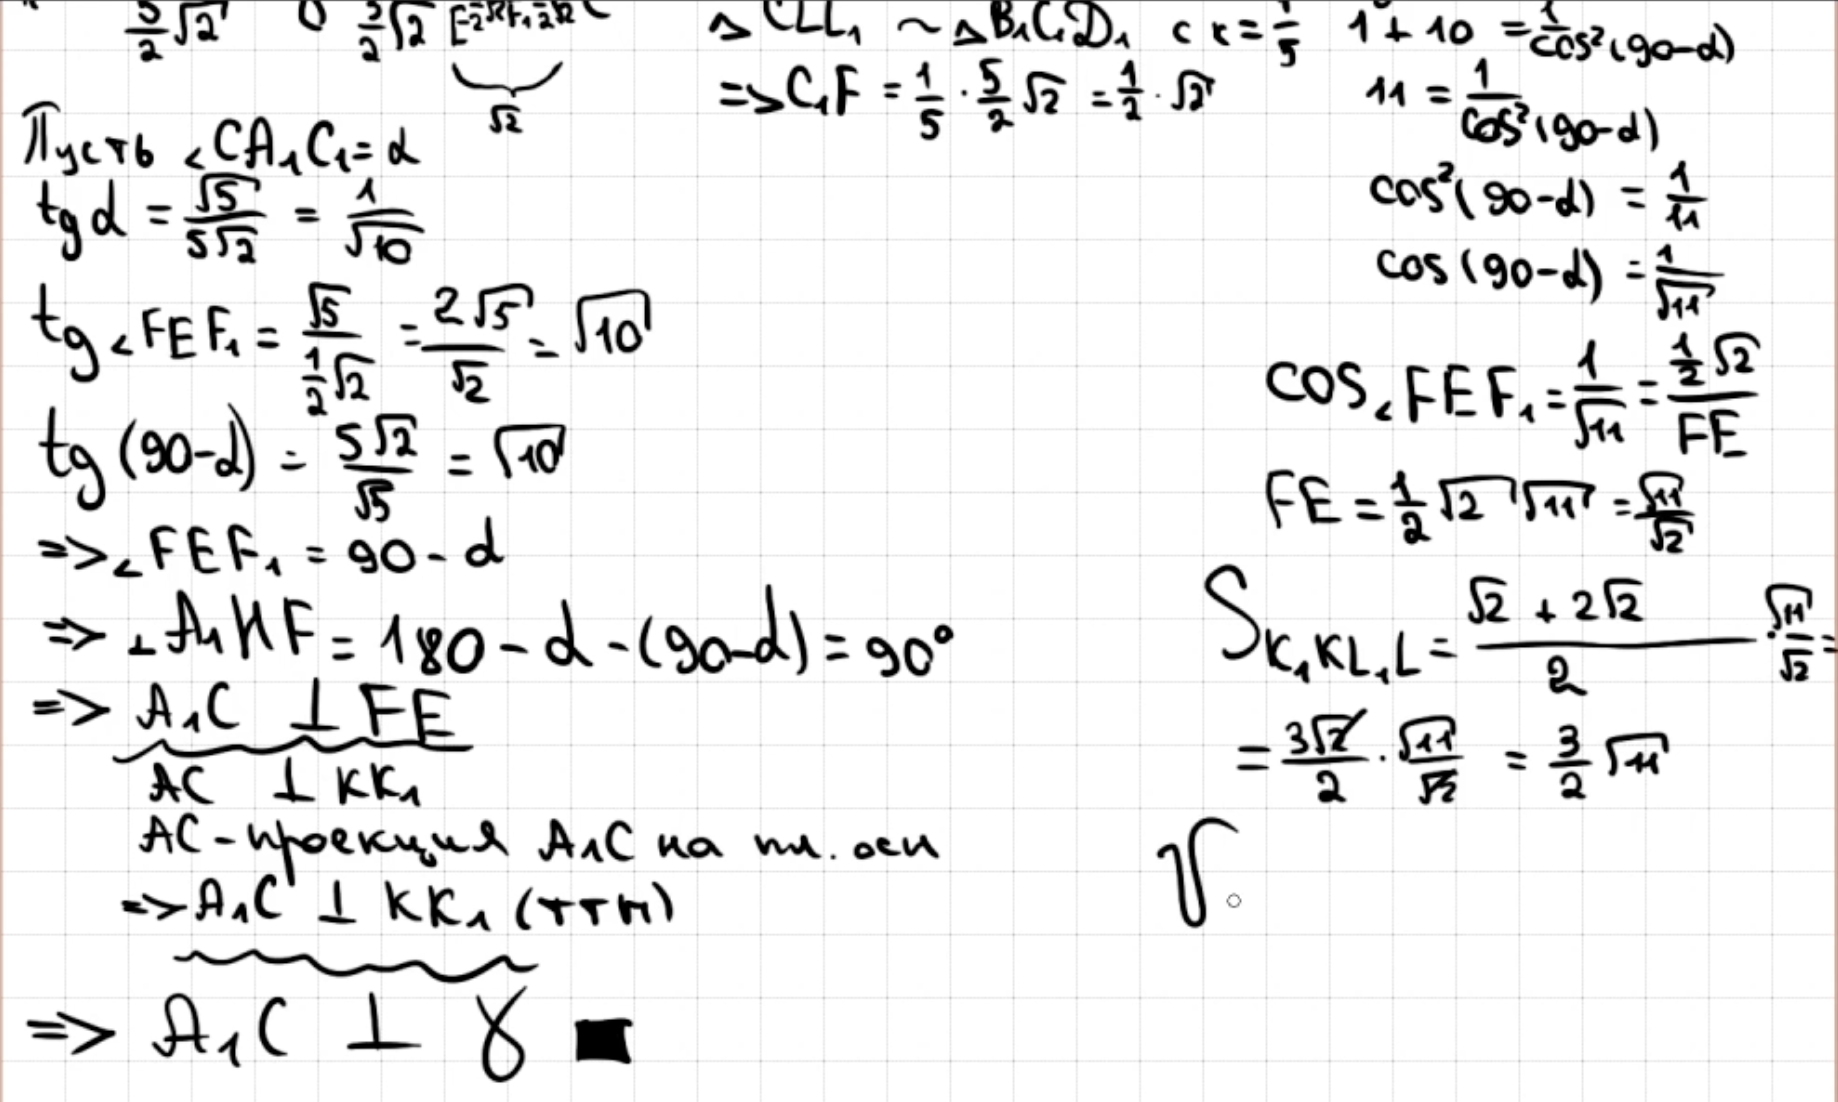 5/2 √2 0 5/2 √2
√2
Пусть ∠CA₁C₁ = α
tg α = √5/5√2 = 1/√10
tg ∠FEF₁ = √5/(1/2 √2) = 2√5/√2 = √10
tg (90-α) = 5√2/√5 = √10
=> ∠FEF₁ = 90 - α
=> ∠A₁HF = 180 - α - (90-α) = 90°
=> A₁C ⊥ FE
AC ⊥ KK₁
AC - проекция A₁C на пл. осн
=> A₁C ⊥ KK₁ (ТТП)
=> A₁C ⊥ γ ■
△ CLL₁ ~ △B₁C₁D₁ с к = 1/5
=> C₁F = 1/5 · 5/2 √2 = 1/2 · √2
1 + 10 = 1/cos²(90-α)
11 = 1/cos²(90-α)
cos²(90-α) = 1/11
cos (90-α) = 1/√11
cos ∠FEF₁ = 1/√11 = (1/2 √2)/FE
FE = 1/2 √2 √11 = √11/√2
S K₁KL₁L = (√2 + 2√2)/2 · √11/√2 =
= 3√2/2 · √11/√2 = 3/2 √11